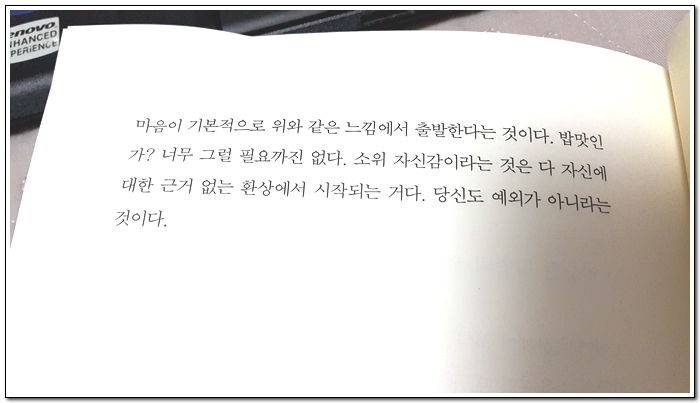 enovo.
ENHANCED
PERiENCE
마음이 기본적으로 위와 같은 느낌에서 출발한다는 것이다. 밥맛인
가? 너무 그럴 필요까진 없다. 소위 자신감이라는 것은 다 자신에
대한 근거 없는 환상에서 시작되는 거다. 당신도 예외가 아니라는
것이다.